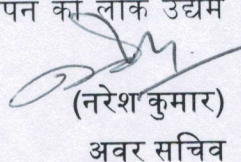 पन को लोक उद्यम
(नरेश कुमार)
अवर सचिव